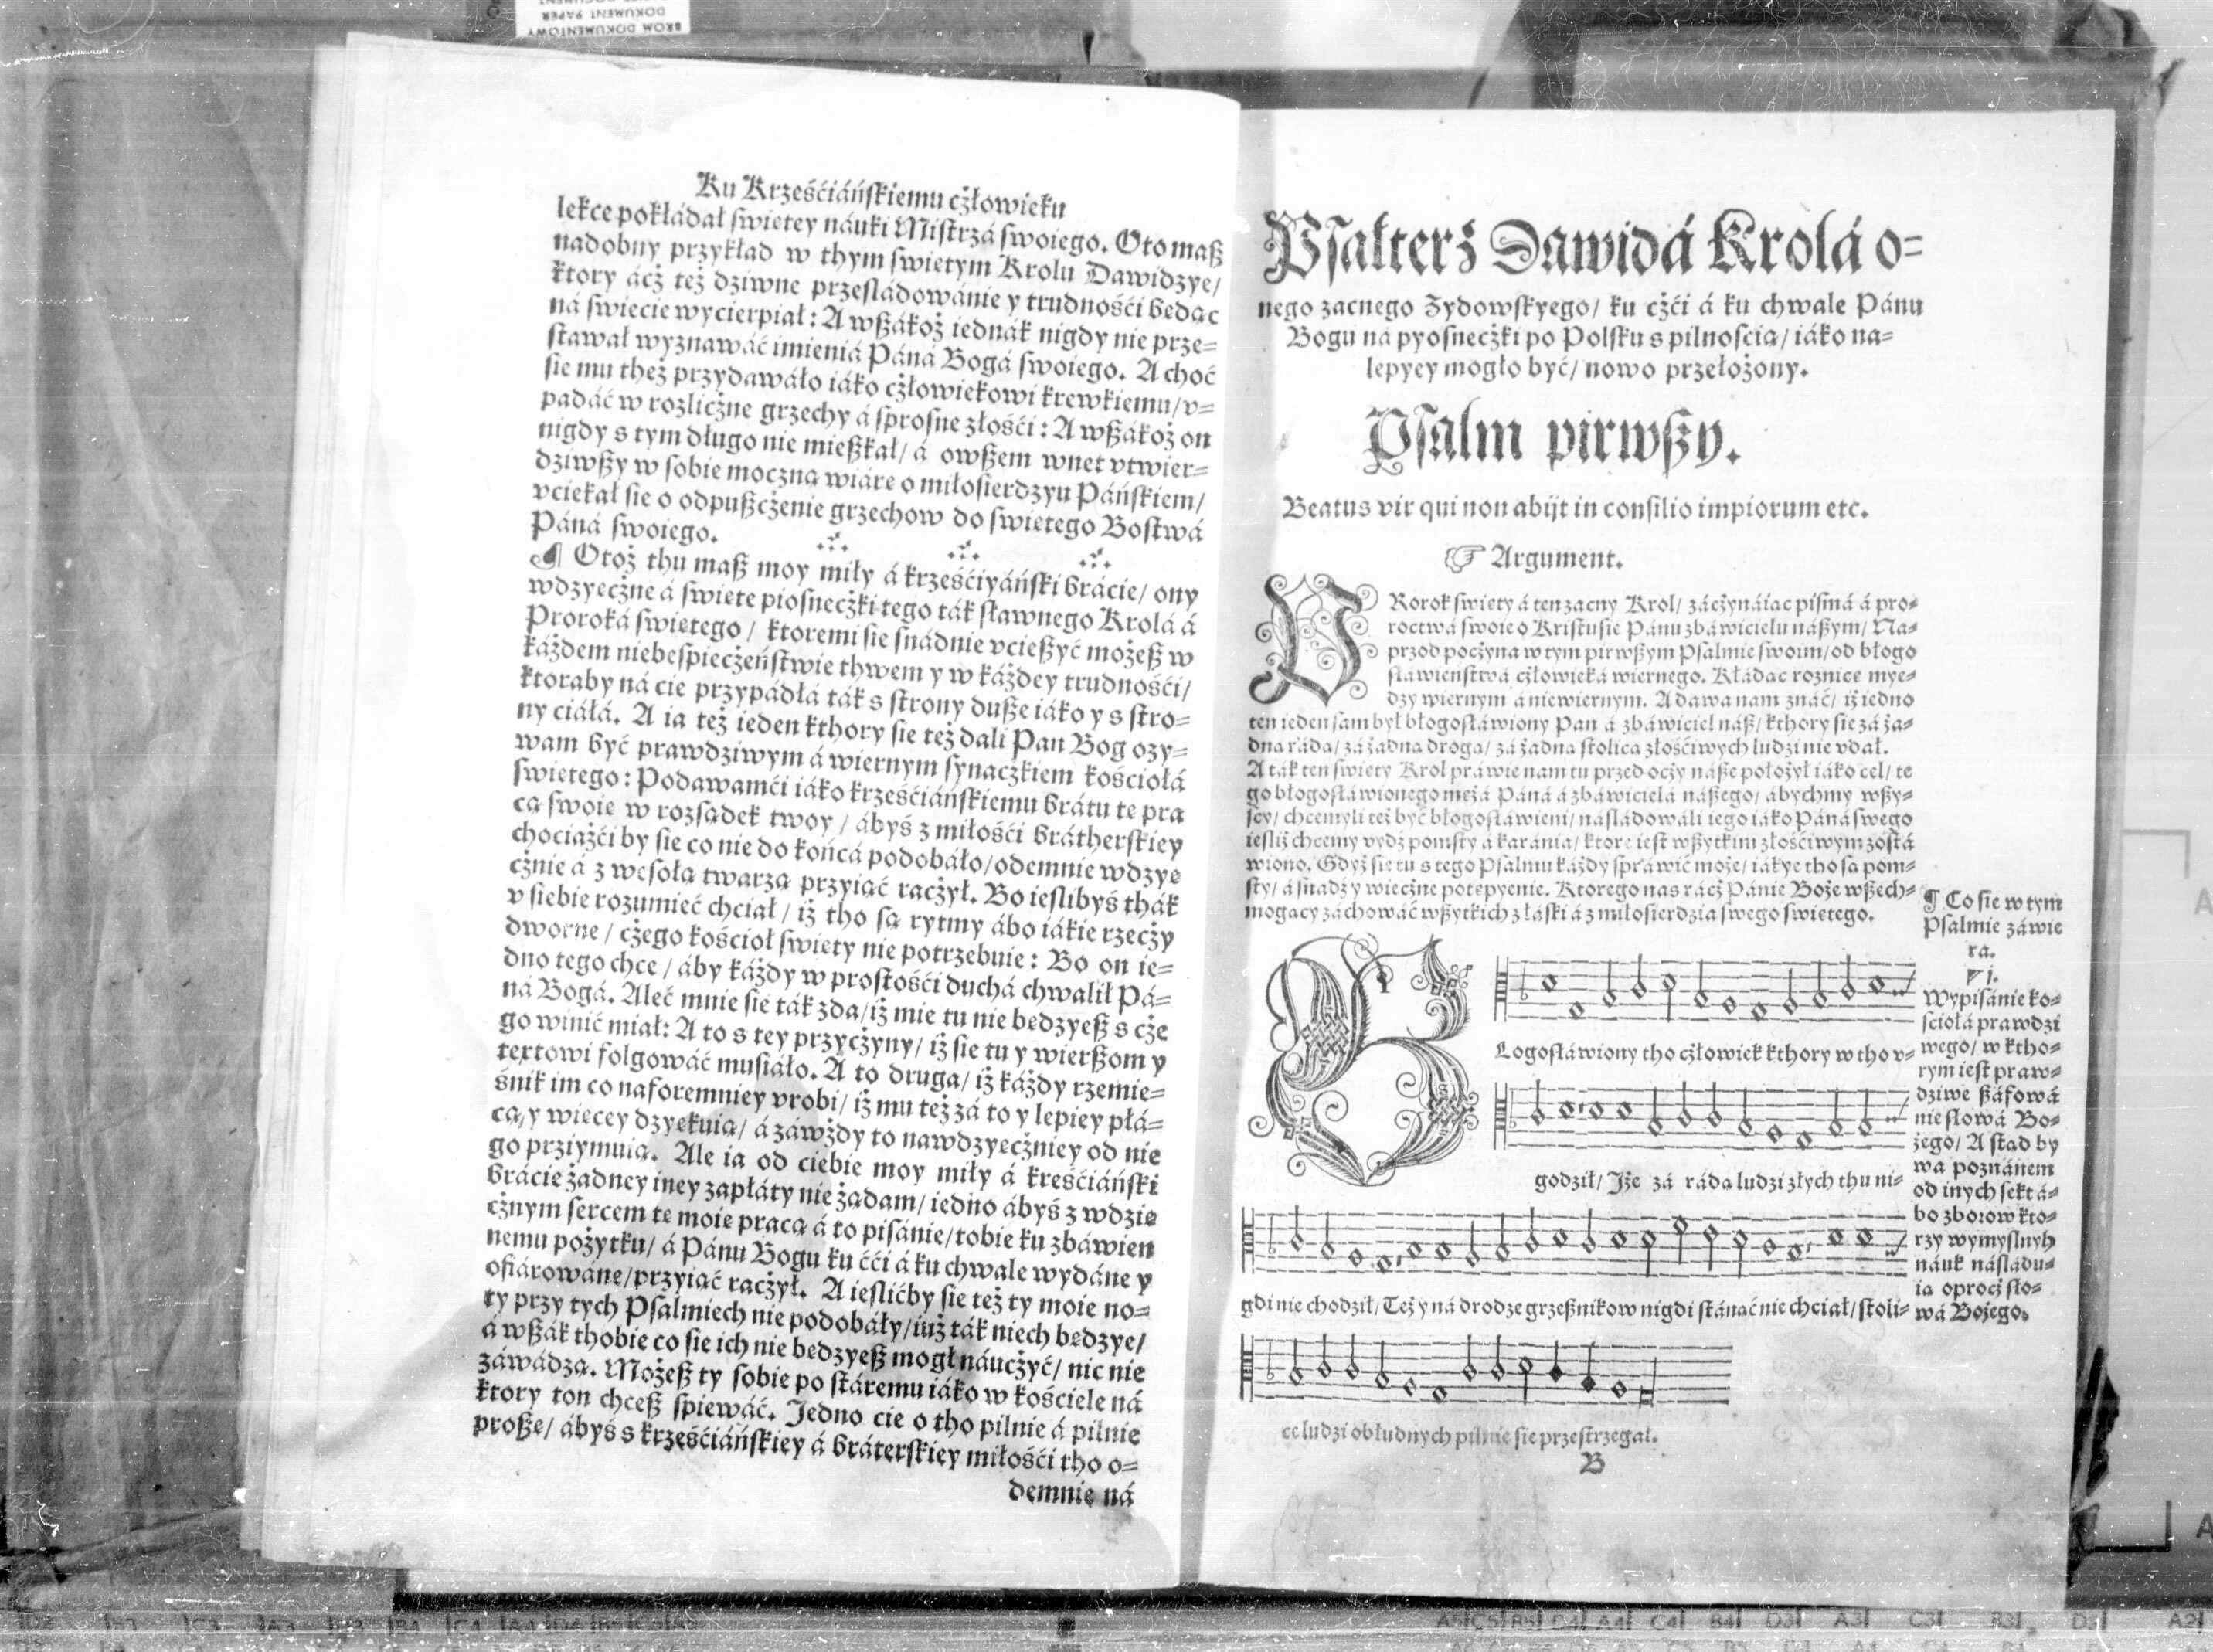 Ku Krześćiáńſkiemu cżłowieku
lekce pokłádał ſwietey náuki Miſtrzá ſwoiego. Oto maß
nadobny przykład w thym ſwietym Krolu Dawidzye/
ktory ácż też dziwne przeſládowánie y trudnośći bedąc
ná ſwiecie wycierpiał: A wßákoż iednák nigdy nie prze⸗
ſtawał wyznawáć imieniá Páná Bogá ſwoiego. A choć
ſie mu theż przydawáło iáko cżłowiekowi krewkiemu/ v⸗
padáć w rozlicżne grzechy á ſproſne złośći: A wßákoż on
nigdy s tym długo nie mießkał/ á owßem wnet vtwier⸗
dziwßy w ſobie moczną wiáre o miłoſierdzyu Páńſkiem/
vciekał ſie o odpußcżenie grzechow do ſwietego Boſtwá
Páná ſwoiego.
¶ Otoż thu maß moy miły á krześćiyáńſki brácie/ ony
wdzyecżne á ſwiete pioſnecżki tego ták ſławnego Krolá á
Proroká ſwietego/ ktoremi ſie ſnádnie vcießyć możeß w
káżdem niebeſpiecżeńſtwie thwem y w káżdey trudnośći/
ktoraby ná cie przypádłá ták s ſtrony duße iáko y s ſtro⸗
ny ciáłá. A ia też ieden kthory ſie też dali Pan Bog ozy⸗
wam być prawdziwym á wiernym ſynaczkiem kośćiołá
ſwietego: Podawamći iáko krześćiáńſkiemu brátu te pra
cą ſwoie w rozſądek twoy/ ábyś z miłośći brátherſkiey
chociażći by ſie co nie do końcá podobáło/ odemnie wdzye
cżnie á z weſołą twarzą przyiąć racżył. Bo ieſlibyś thák
v ſiebie rozumieć chciał/ iż tho ſą rytmy ábo iákie rzecży
dworne/ cżego kośćioł ſwiety nie potrzebuie: Bo on ie⸗
dno tego chce/ áby káżdy w proſtośći duchá chwalił Pá⸗
ná Bogá. Aleć mnie ſie ták zda/ iż mie tu nie bedzyeß s cże
go winić miał: A to s tey przycżyny/ iż ſie tu y wierßom y
textowi folgowáć muſiáło. A to druga/ iż káżdy rzemie⸗
śnik im co naforemniey vrobi/ iż mu też zá to y lepiey płá⸗
cą/ y wiecey dzyekuią/ á záwżdy to nawdzyecżniey od nie
go prziymuią. Ale ia od ciebie moy miły á kreśćiáńſki
brácie żadney iney zapłáty nie żądam/ iedno ábyś z wdzie
cżnym ſercem te moie pracą á to piſánie/ tobie ku zbáwien
nemu pożytku/ á Pánu Bogu ku ćći á ku chwale wydáne y
ofiárowáne/ przyiąć racżył. A ieſlićby ſie też ty moie no⸗
ty przy tych Pſalmiech nie podobáły/ iuż ták niech bedzye/
á wßák thobie co ſie ich nie bedzyeß mogł náucżyć/ nic nie
záwádzą. Możeß ty ſobie po ſtáremu iáko w kościele ná
ktory ton chceß ſpiewáć. Jedno cie o tho pilnie á pilnie
proße/ ábyś s krześćiáńſkiey á bráterſkiey miłośći tho o⸗
demnie ná
Pſałterż Dawidá Krolá o⸗
nego zacnego Zydowſkyego/ ku cżći á ku chwale Pánu
Bogu ná pyoſnecżki po Polſku s pilnoſcią/ iáko na⸗
lepyey mogło być/ nowo przełożony.
Pſalm pirwßy.
Beatus vir qui non abijt in conſilio impiorum etc.
☞ Argument.
PRorok ſwiety á ten zacny Krol/ zácżynáiąc piſmá á pro⸗
roctwá ſwoie o Kriſtuſie Pánu zbáwicielu náßym/ Na⸗
przod pocżyna w tym pirwßym Pſalmie ſwoim/ od błogo
ſłáwieńſtwá cżłowieká wiernego. Kłádąc roznice mye⸗
dzy wiernym á niewiernym. A dawa nam znáć/ iż iedno
ten ieden ſam był błogoſłáwiony Pan á zbáwiciel náß/ kthory ſie zá żа⸗
dną rádą/ zá żadną drogą/ zá żadną ſtolicą złośćiwych ludzi nie vdał.
A ták ten ſwiety Krol práwie nam tu przed ocży náße położył iáko cel/ te
go błogoſłáwionego mężá Páná á zbáwicielá náßego/ ábychmy wßy⸗
ſcy/ chcemyli też być błogoſłáwieni/ náſládowáli iego iáko Páná ſwego
ieſliż chcemy vydź pomſty á karánia/ ktore ieſt wßytkim złośćiwym zoſtá
wiono. Gdyż ſie tu s tego Pſalmu káżdy ſpráwić może/ iákye tho ſą pom⸗
ſty/ á ſnadż y wiecżne potępyenie. Ktorego nas rácż Pánie Boże wßech⸗
mogący záchowáć wßytkich z łáſki á z miłoſierdzia ſwego ſwietego.
¶ Co ſie w tym
Pſalmie záwie
ra.
j.
Wypiſánie ko⸗
ſciołá prawdzi
wego/ w ktho⸗
rym ieſt praw⸗
dziwe ßáfowá
nie ſłowá Bo⸗
żego/ A ſtąd by
wa poznánem
od inych ſekt á⸗
bo zborow kto⸗
rzy wymyſlnyh
náuk náſládu⸗
ią oprocż ſło⸗
wá Bożego.
BLogoſłáwiony tho cżłowiek kthory w tho v⸗
godził/ Jże zá rádą ludzi złych thu ni⸗
gdi nie chodził/ Też y ná drodze grzeßnikow nigdi ſtánąć nie chciał/ ſtoli⸗
ce ludzi obłudnych pilnie ſie przeſtrzegał.
B